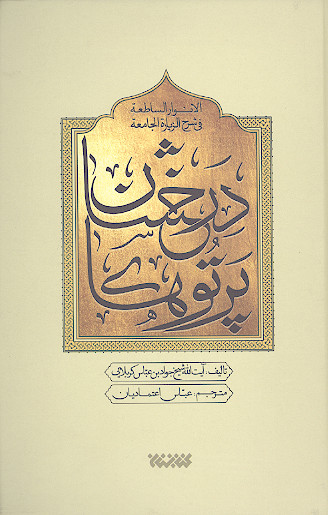 الانوار الساطعة
فی شرح الزیارة الجامعة
پرتوهای
درخشان
تألیف: آیت الله شیخ جواد بن عباس کربلایی
مترجم: عباس اعتمادیان